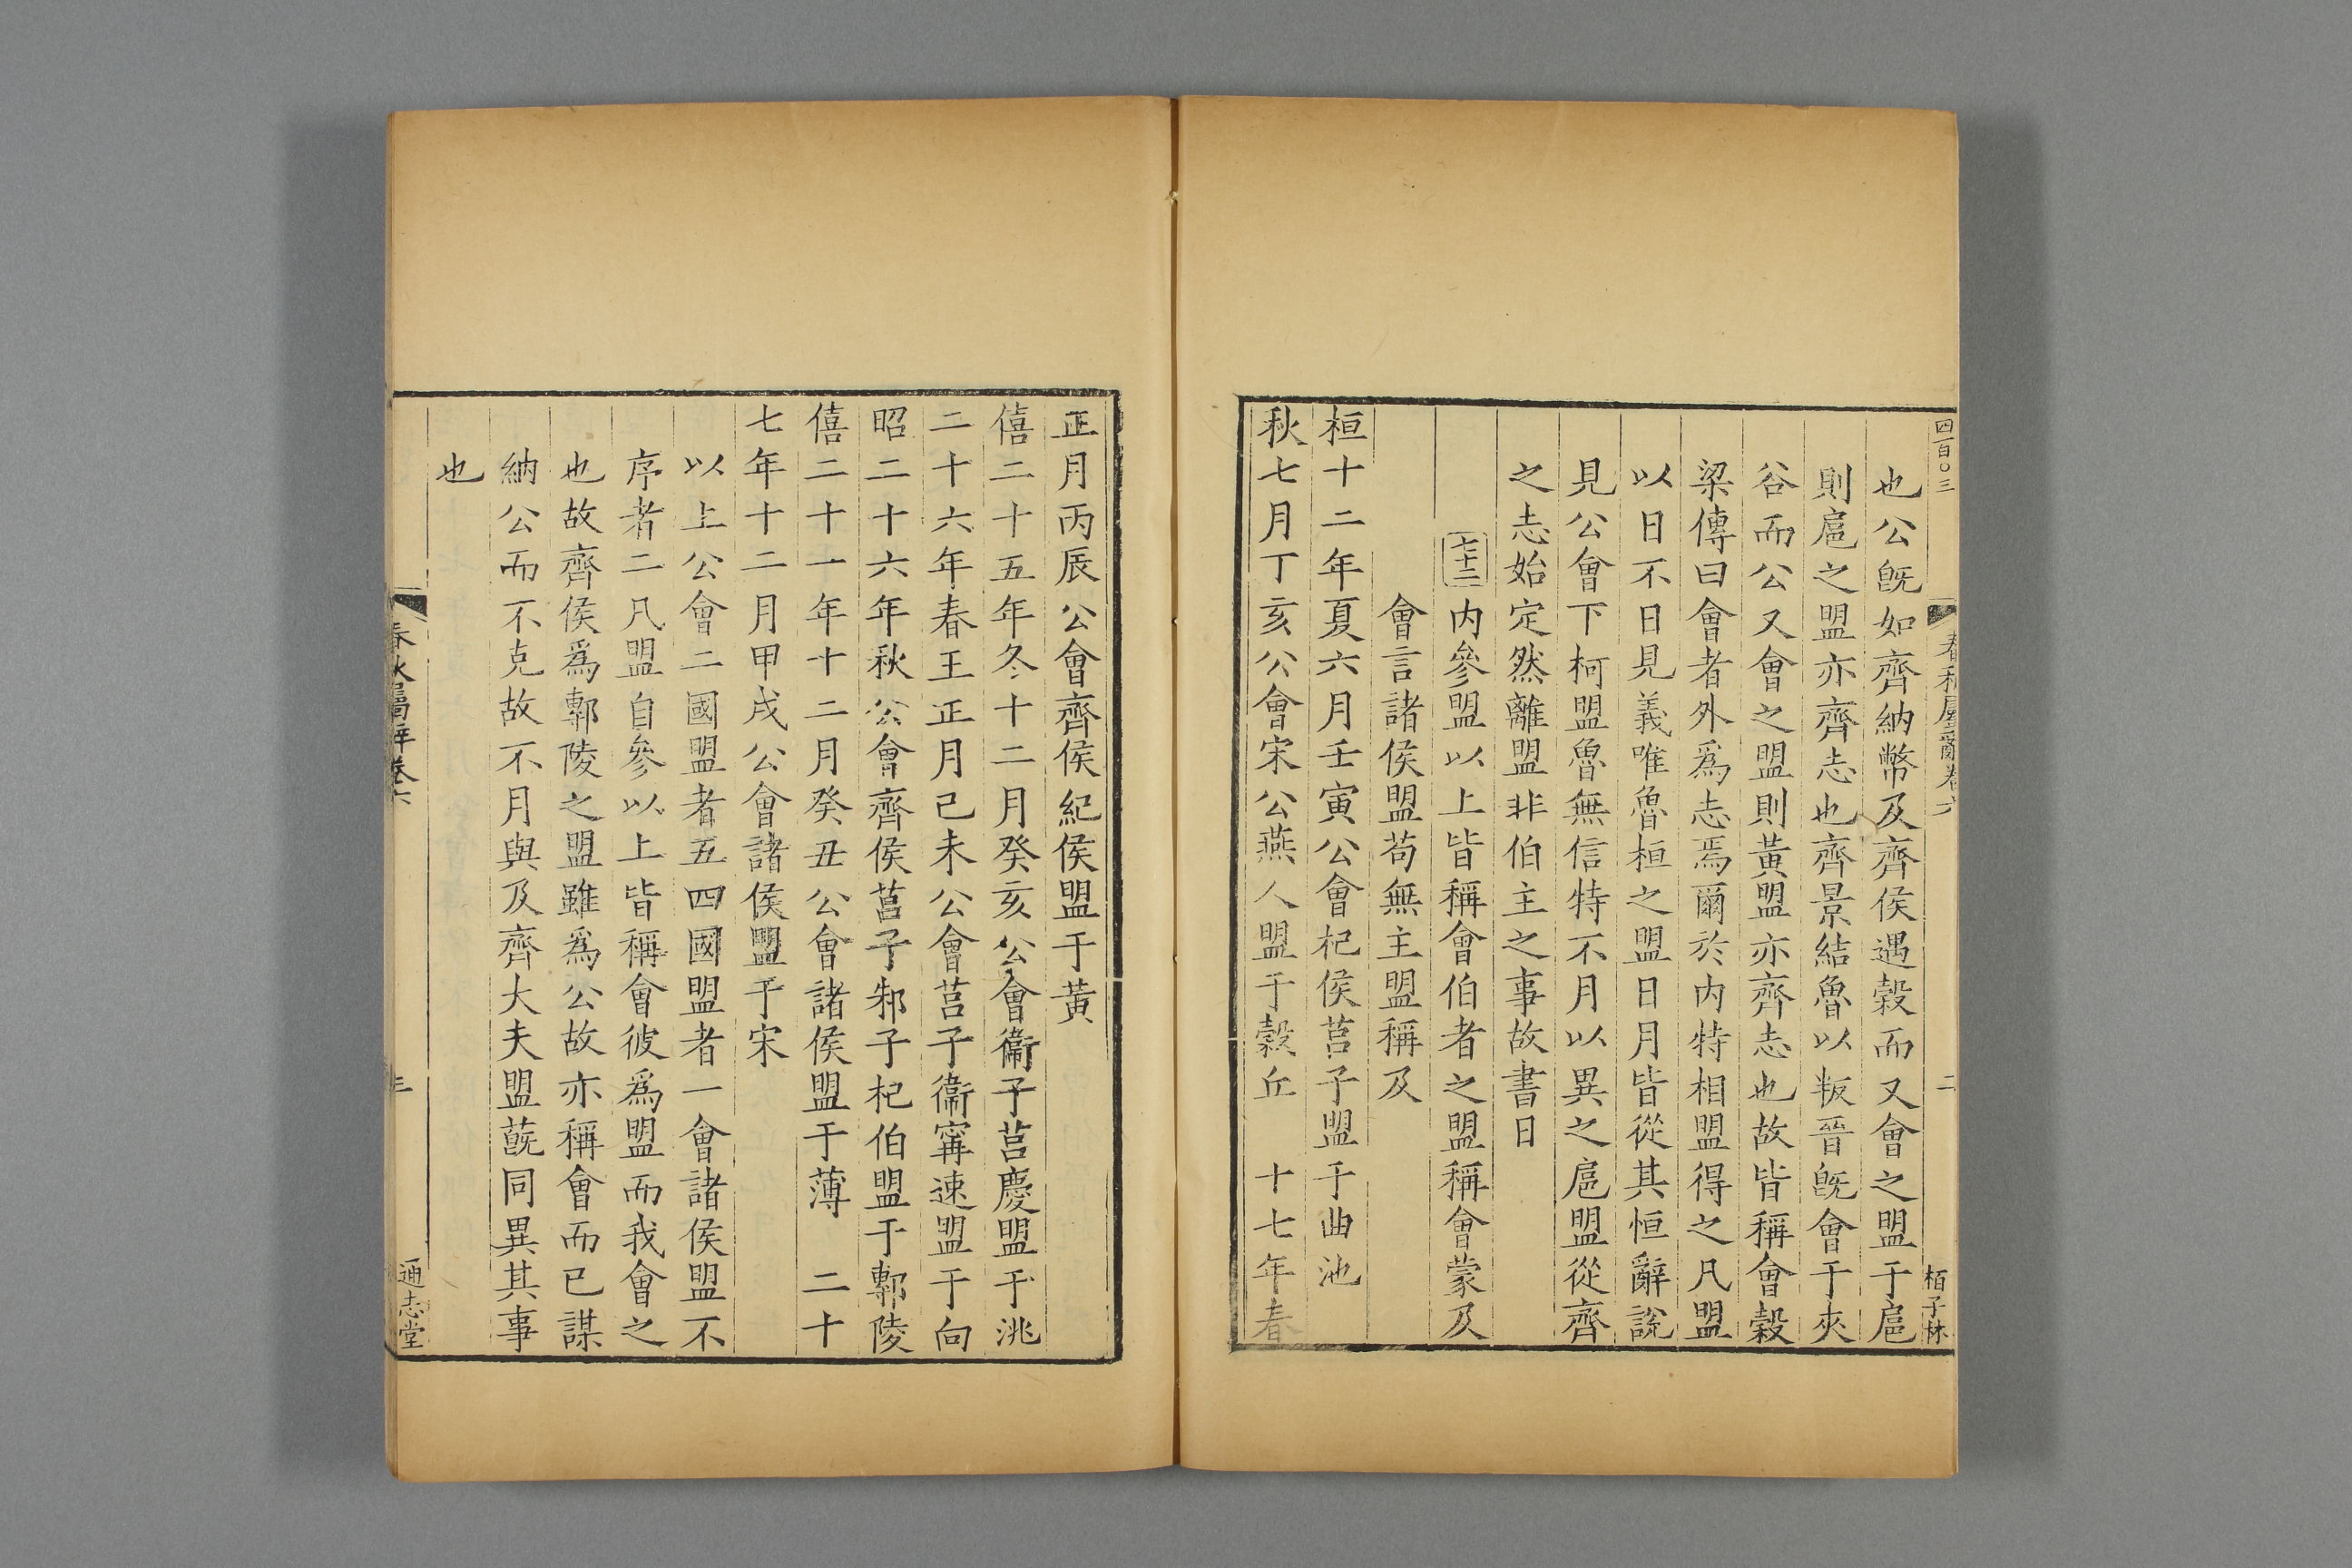 四百〇三
春秋屬辭卷六
二
栢子林
也公旣如齊納幣及齊侯遇穀而又會之盟于扈
則扈之盟亦齊志也齊景結魯以叛晉旣會于夾
谷而公又會之盟則黃盟亦齊志也故皆稱會穀
梁傳曰會者外爲志焉爾於内特相盟得之凡盟
以日不日見義唯魯桓之盟日月皆從其恒辭說
見公會下柯盟魯無信特不月以異之扈盟從齊
之志始定然離盟非伯主之事故書日
七十二 内參盟以上皆稱會伯者之盟稱會蒙及
會言諸侯盟苟無主盟稱及
桓十二年夏六月壬寅公會杞侯莒子盟于曲池
秋七月丁亥公會宋公燕人盟于穀丘 十七年春
正月丙辰公會齊侯紀侯盟于黃
僖二十五年冬十二月癸亥公會衞子莒慶盟于洮
二十六年春王正月己未公會莒子衞甯速盟于向
昭二十六年秋公會齊侯莒子邾子杞伯盟于鄟陵
僖二十一年十二月癸丑公會諸侯盟于薄 二十
七年十二月甲戌公會諸侯盟于宋
以上公會二國盟者五四國盟者一會諸侯盟不
序者二凡盟自參以上皆稱會彼爲盟而我會之
也故齊侯爲鄟陵之盟雖爲公故亦稱會而已謀
納公而不克故不月與及齊大夫盟蔇同異其事
也
春秋屬辭卷六
三
通志堂